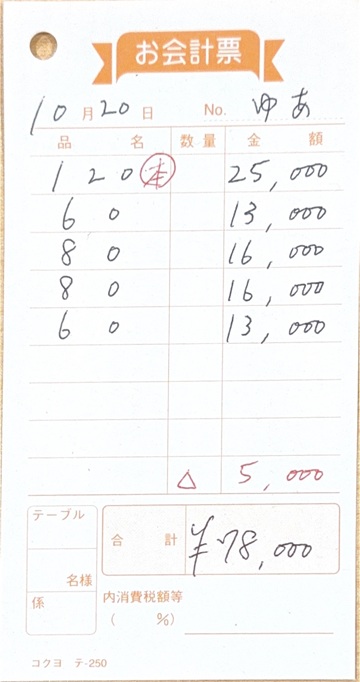 お会計票
10月20日 No. ゆあ
品名 数量 金額
120 本 25,000
60 13,000
80 16,000
80 16,000
60 13,000
△ 5,000
テーブル
名様
係
合計 ¥78,000
内消費税額等
( %)
コクヨ テ-250